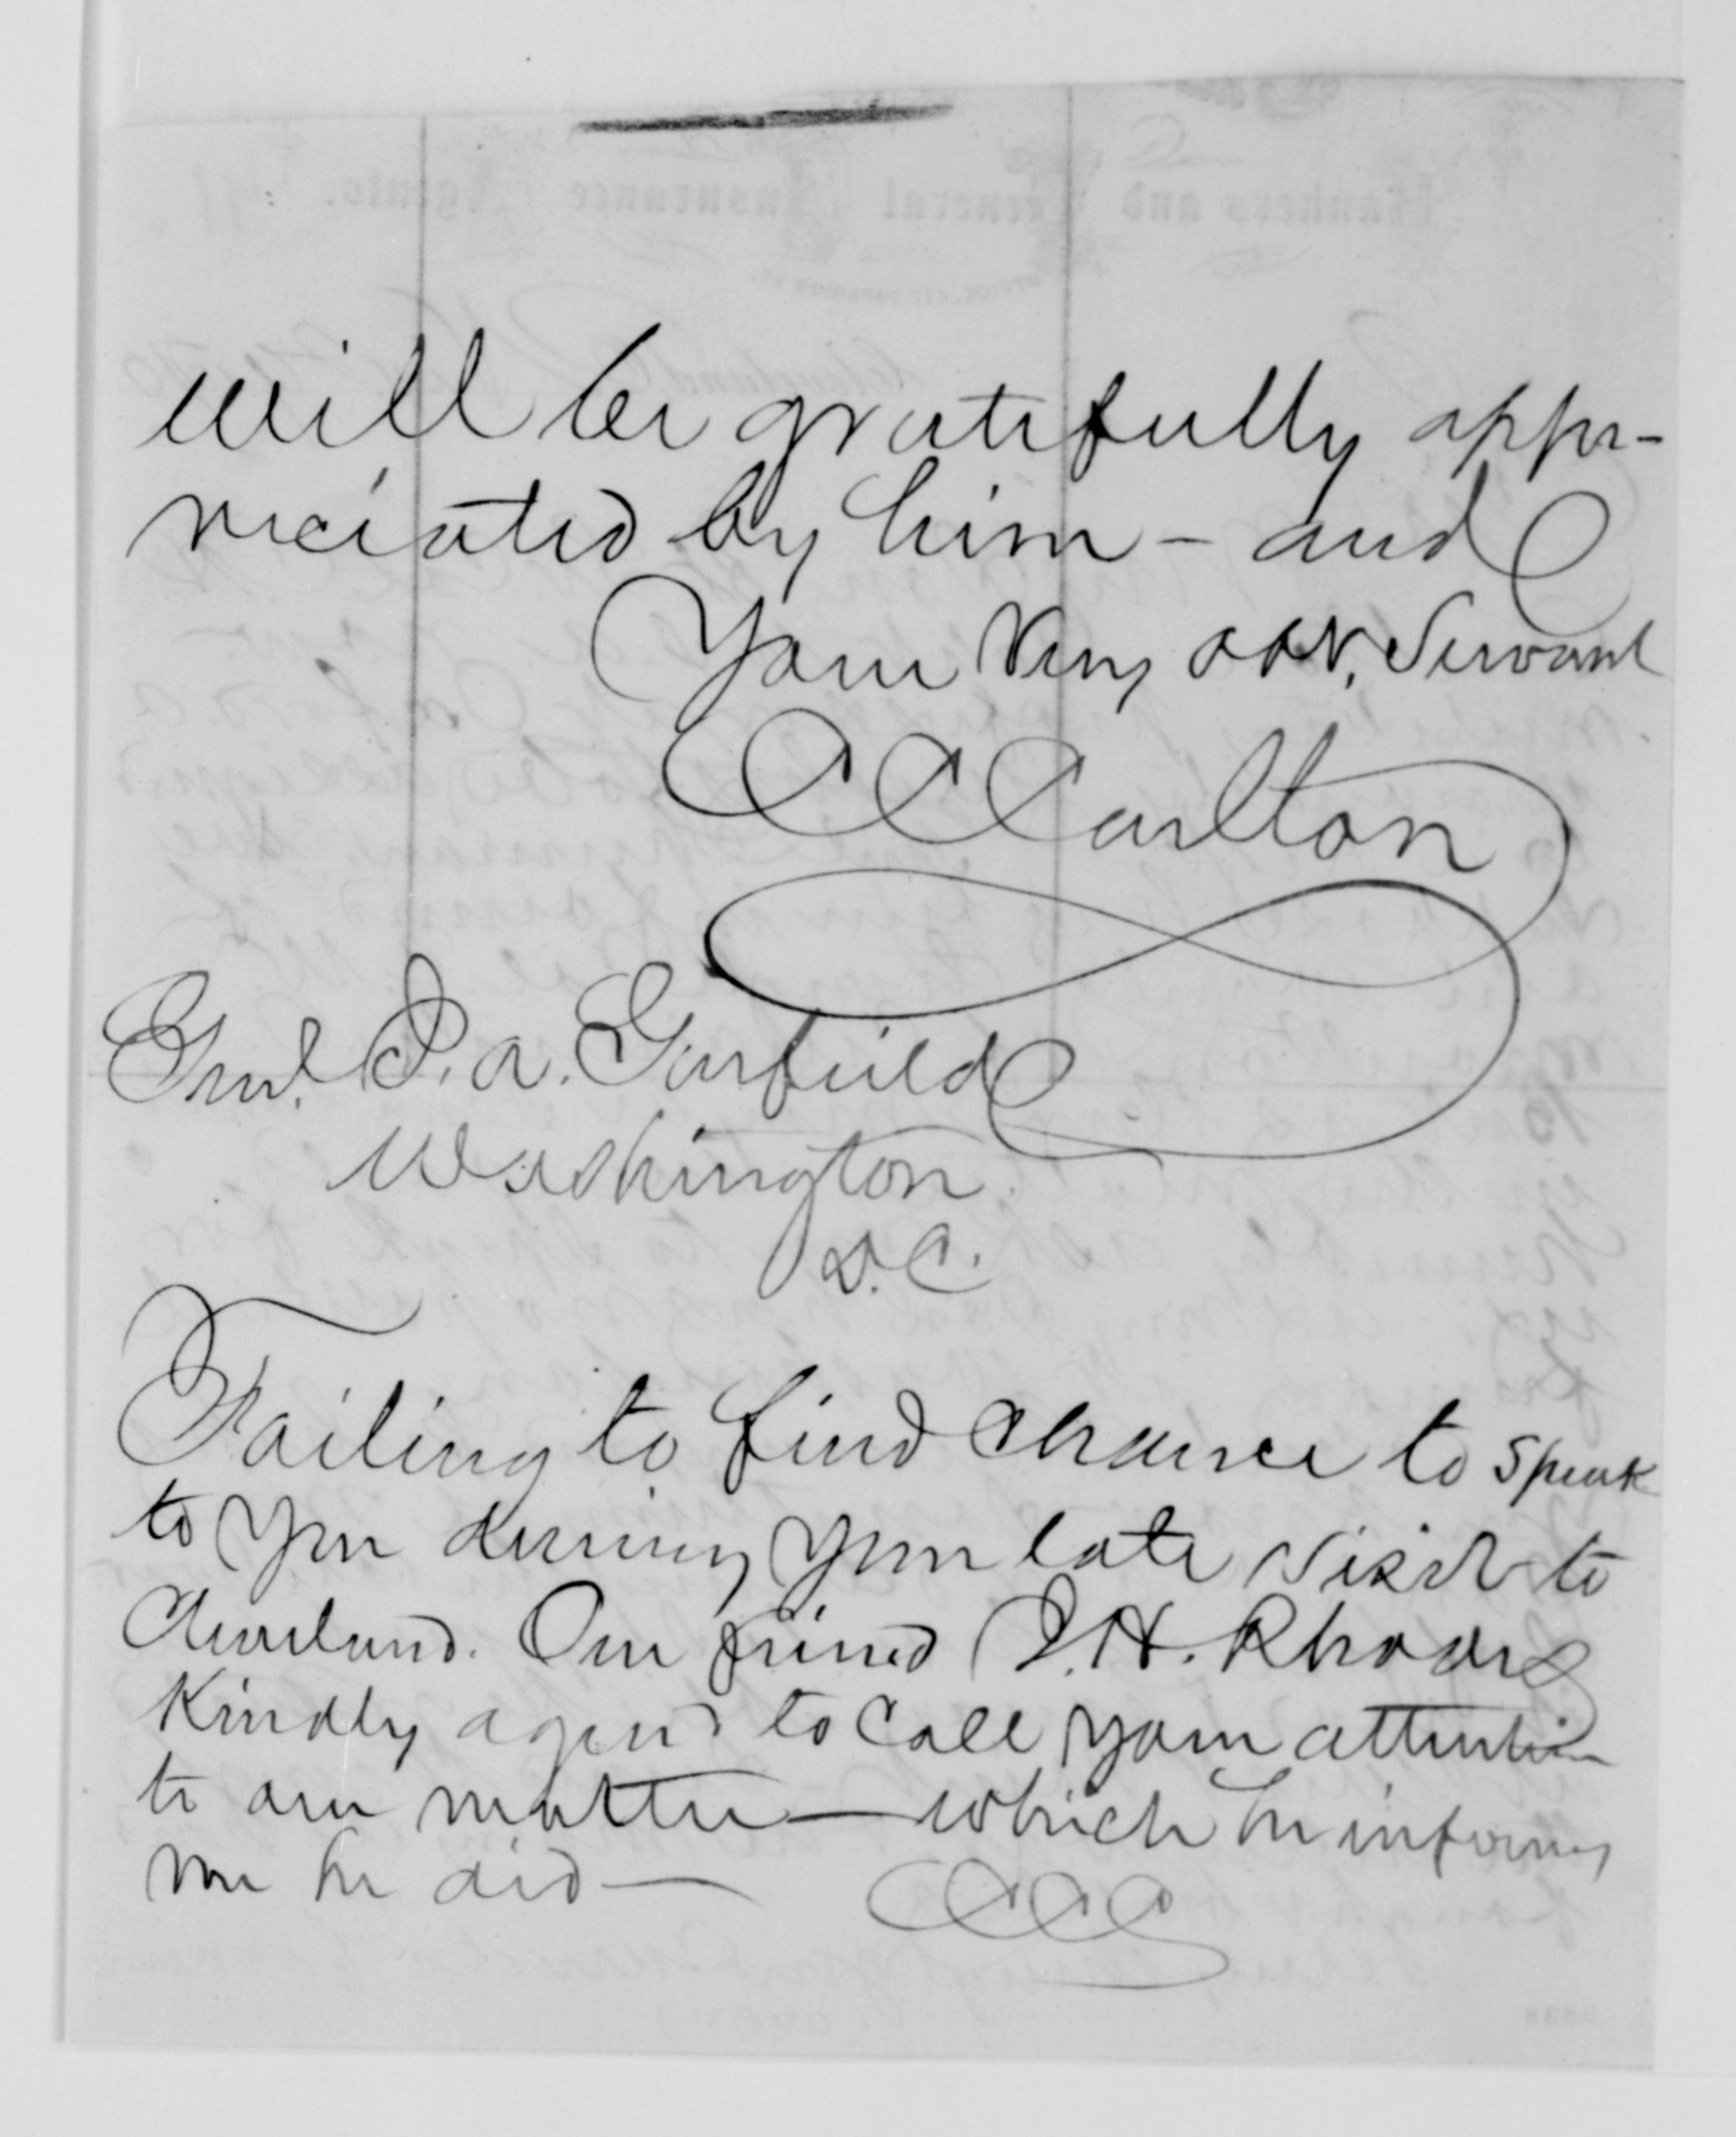 will be gratifully appr-
reciated by him - and
Your Very obt. Servant
CC Carlton
Genl. J. A. Garfield
Washington
D.C.
Failing to find chance to speak
to you during your late visit to
Cleveland. Our friend J. H. Rhodes
Kindly agreed to call your attention
to our matter — which he informs
me he did —
CCC